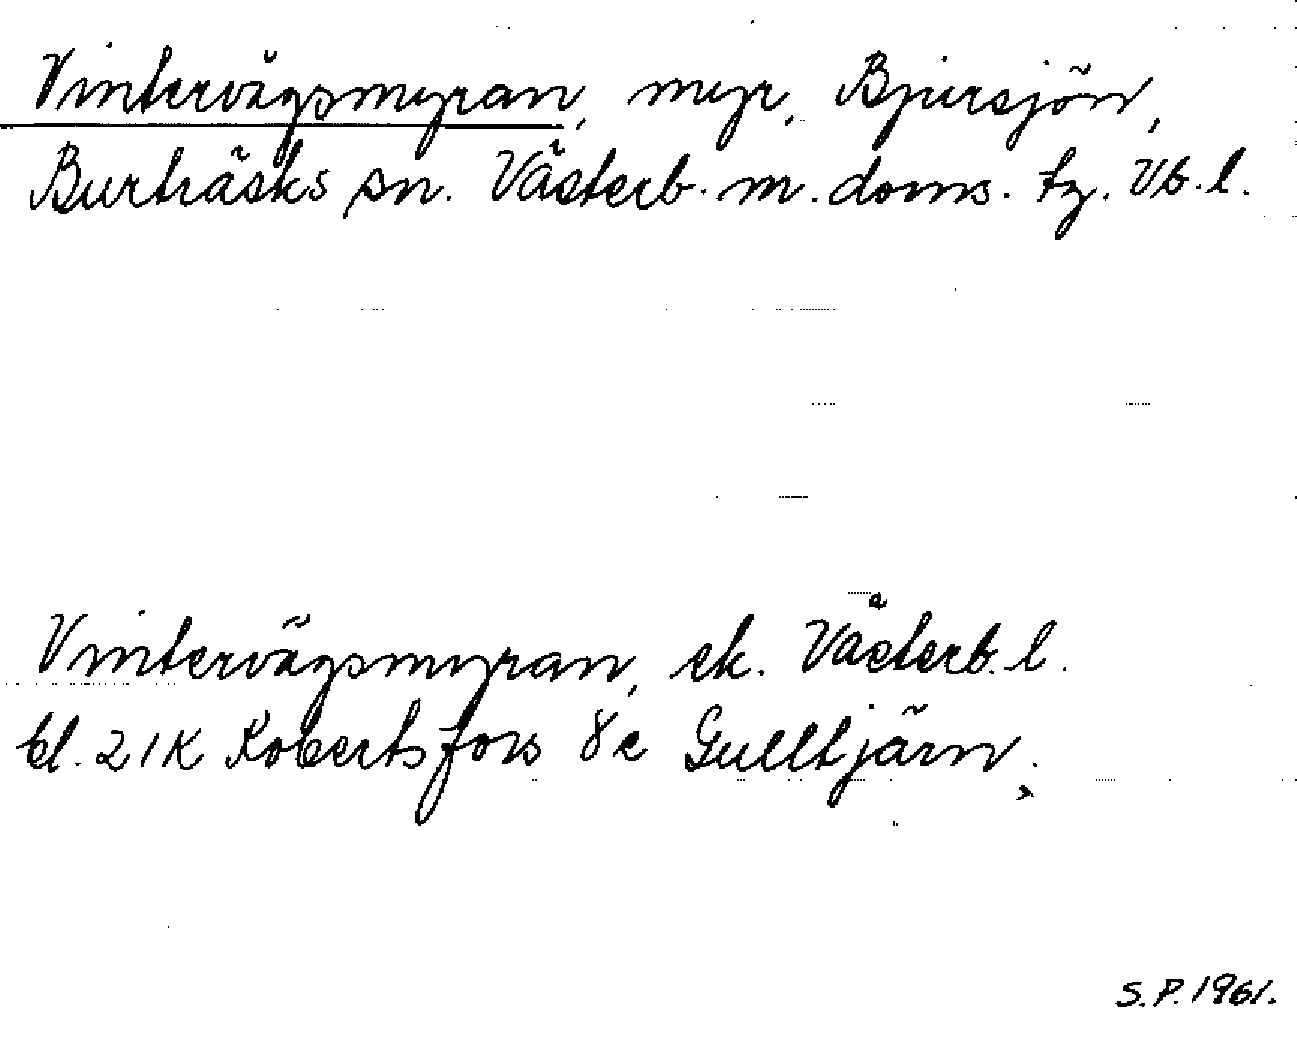 Vintervägsmyran, myr, Bjursjön,
Burträsks sn. Västerb. m. doms. tg. Vb. l.
Vintervägsmyran, ek. Västerb. l.
bl. 21K Robertsfors 8c Gulltjärn.
S.P. 1961.